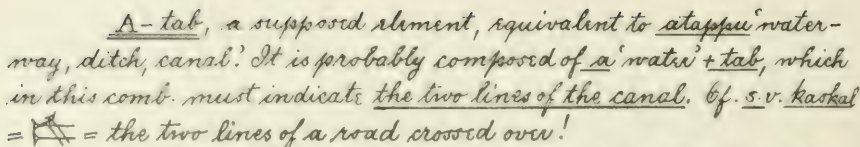 A-tab, a supposed element, equivalent to atappu 'water-
way, ditch, canal.' It is probably composed of a 'water' + tab, which
in this comb. must indicate the two lines of the canal. Cf. s.v. kaskal
= = the two lines of a road crossed over!